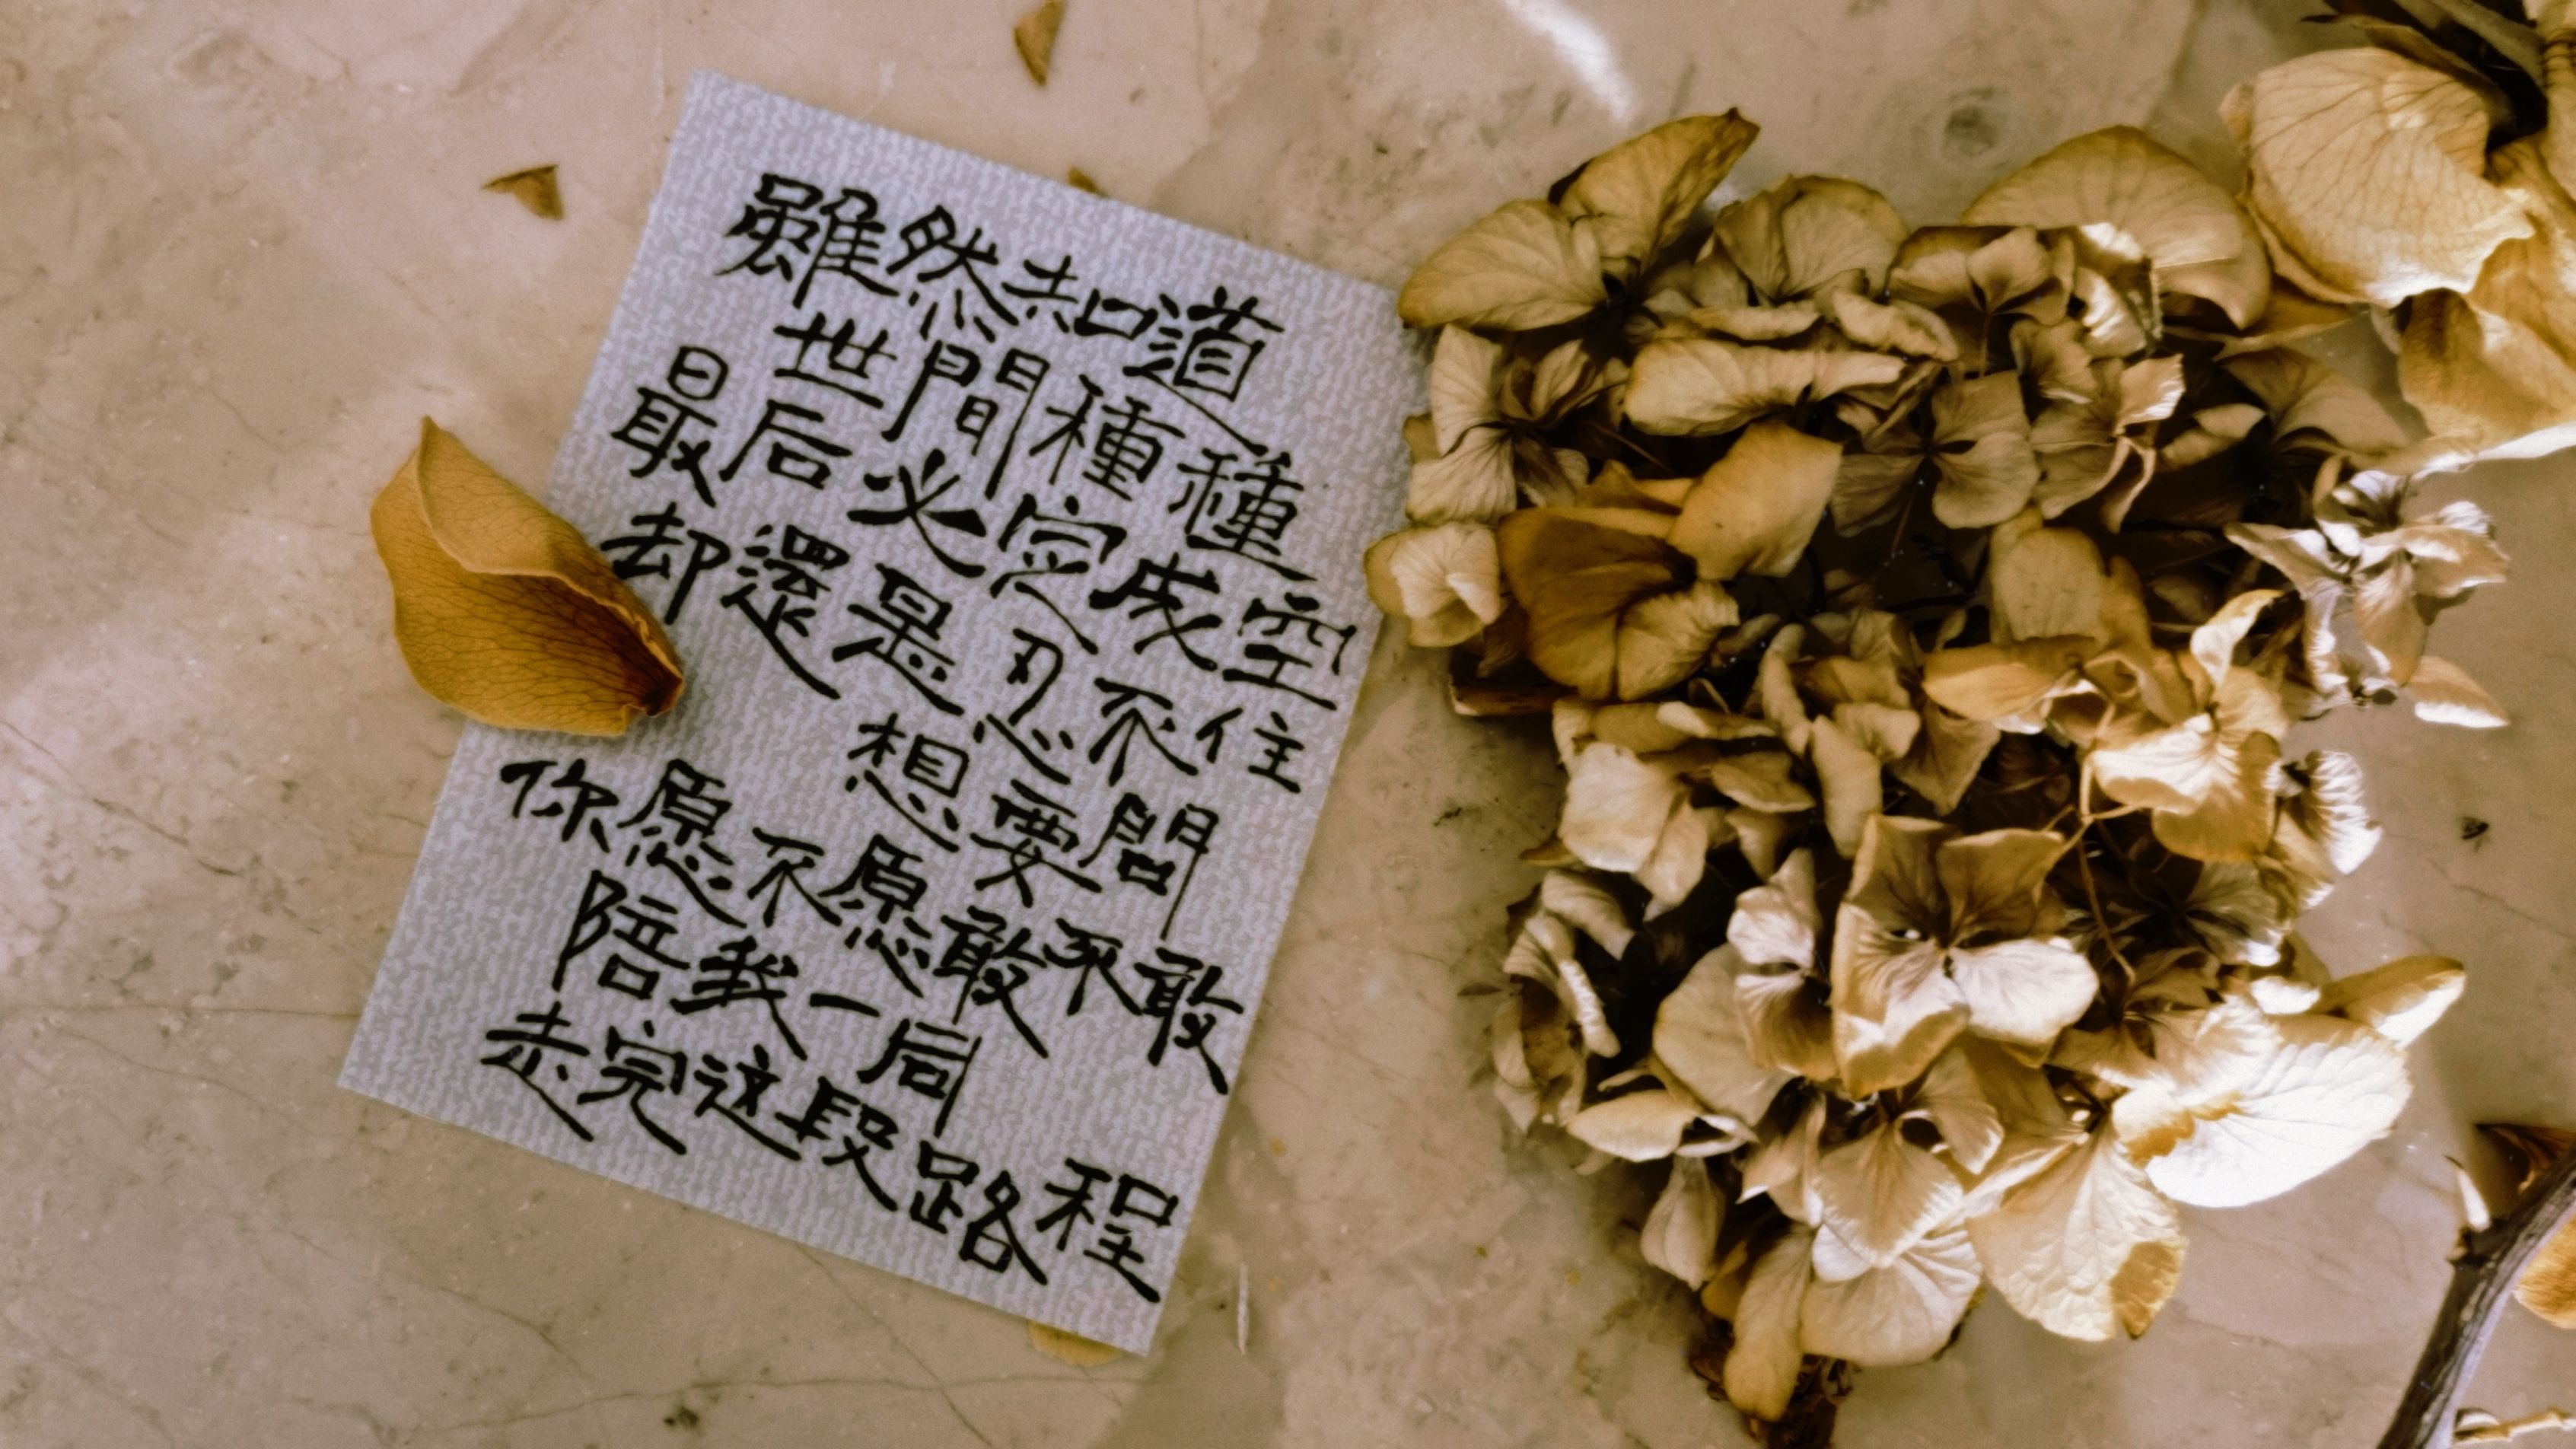 雖然知道
世間種種
最后必定成空
却還是忍不住
想要問
你愿不愿敢不敢
陪我一同
走完这段路程